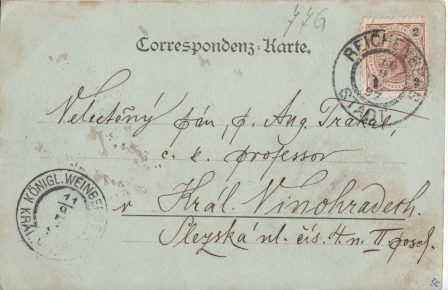 776
Correspondenz-Karte.
2
REICHENBERG
STADT
Velectěný pán, p. Aug. Trakal,
c. k. professor
v Král. Vinohradech.
Slezská ul. čís. 4 n. II posch.
KÖNIGL. WEINBERGE
11